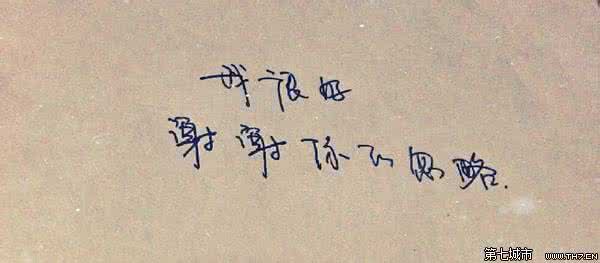 我很好
谢谢你的忽略.
第七城市 WWW.TH7.CN